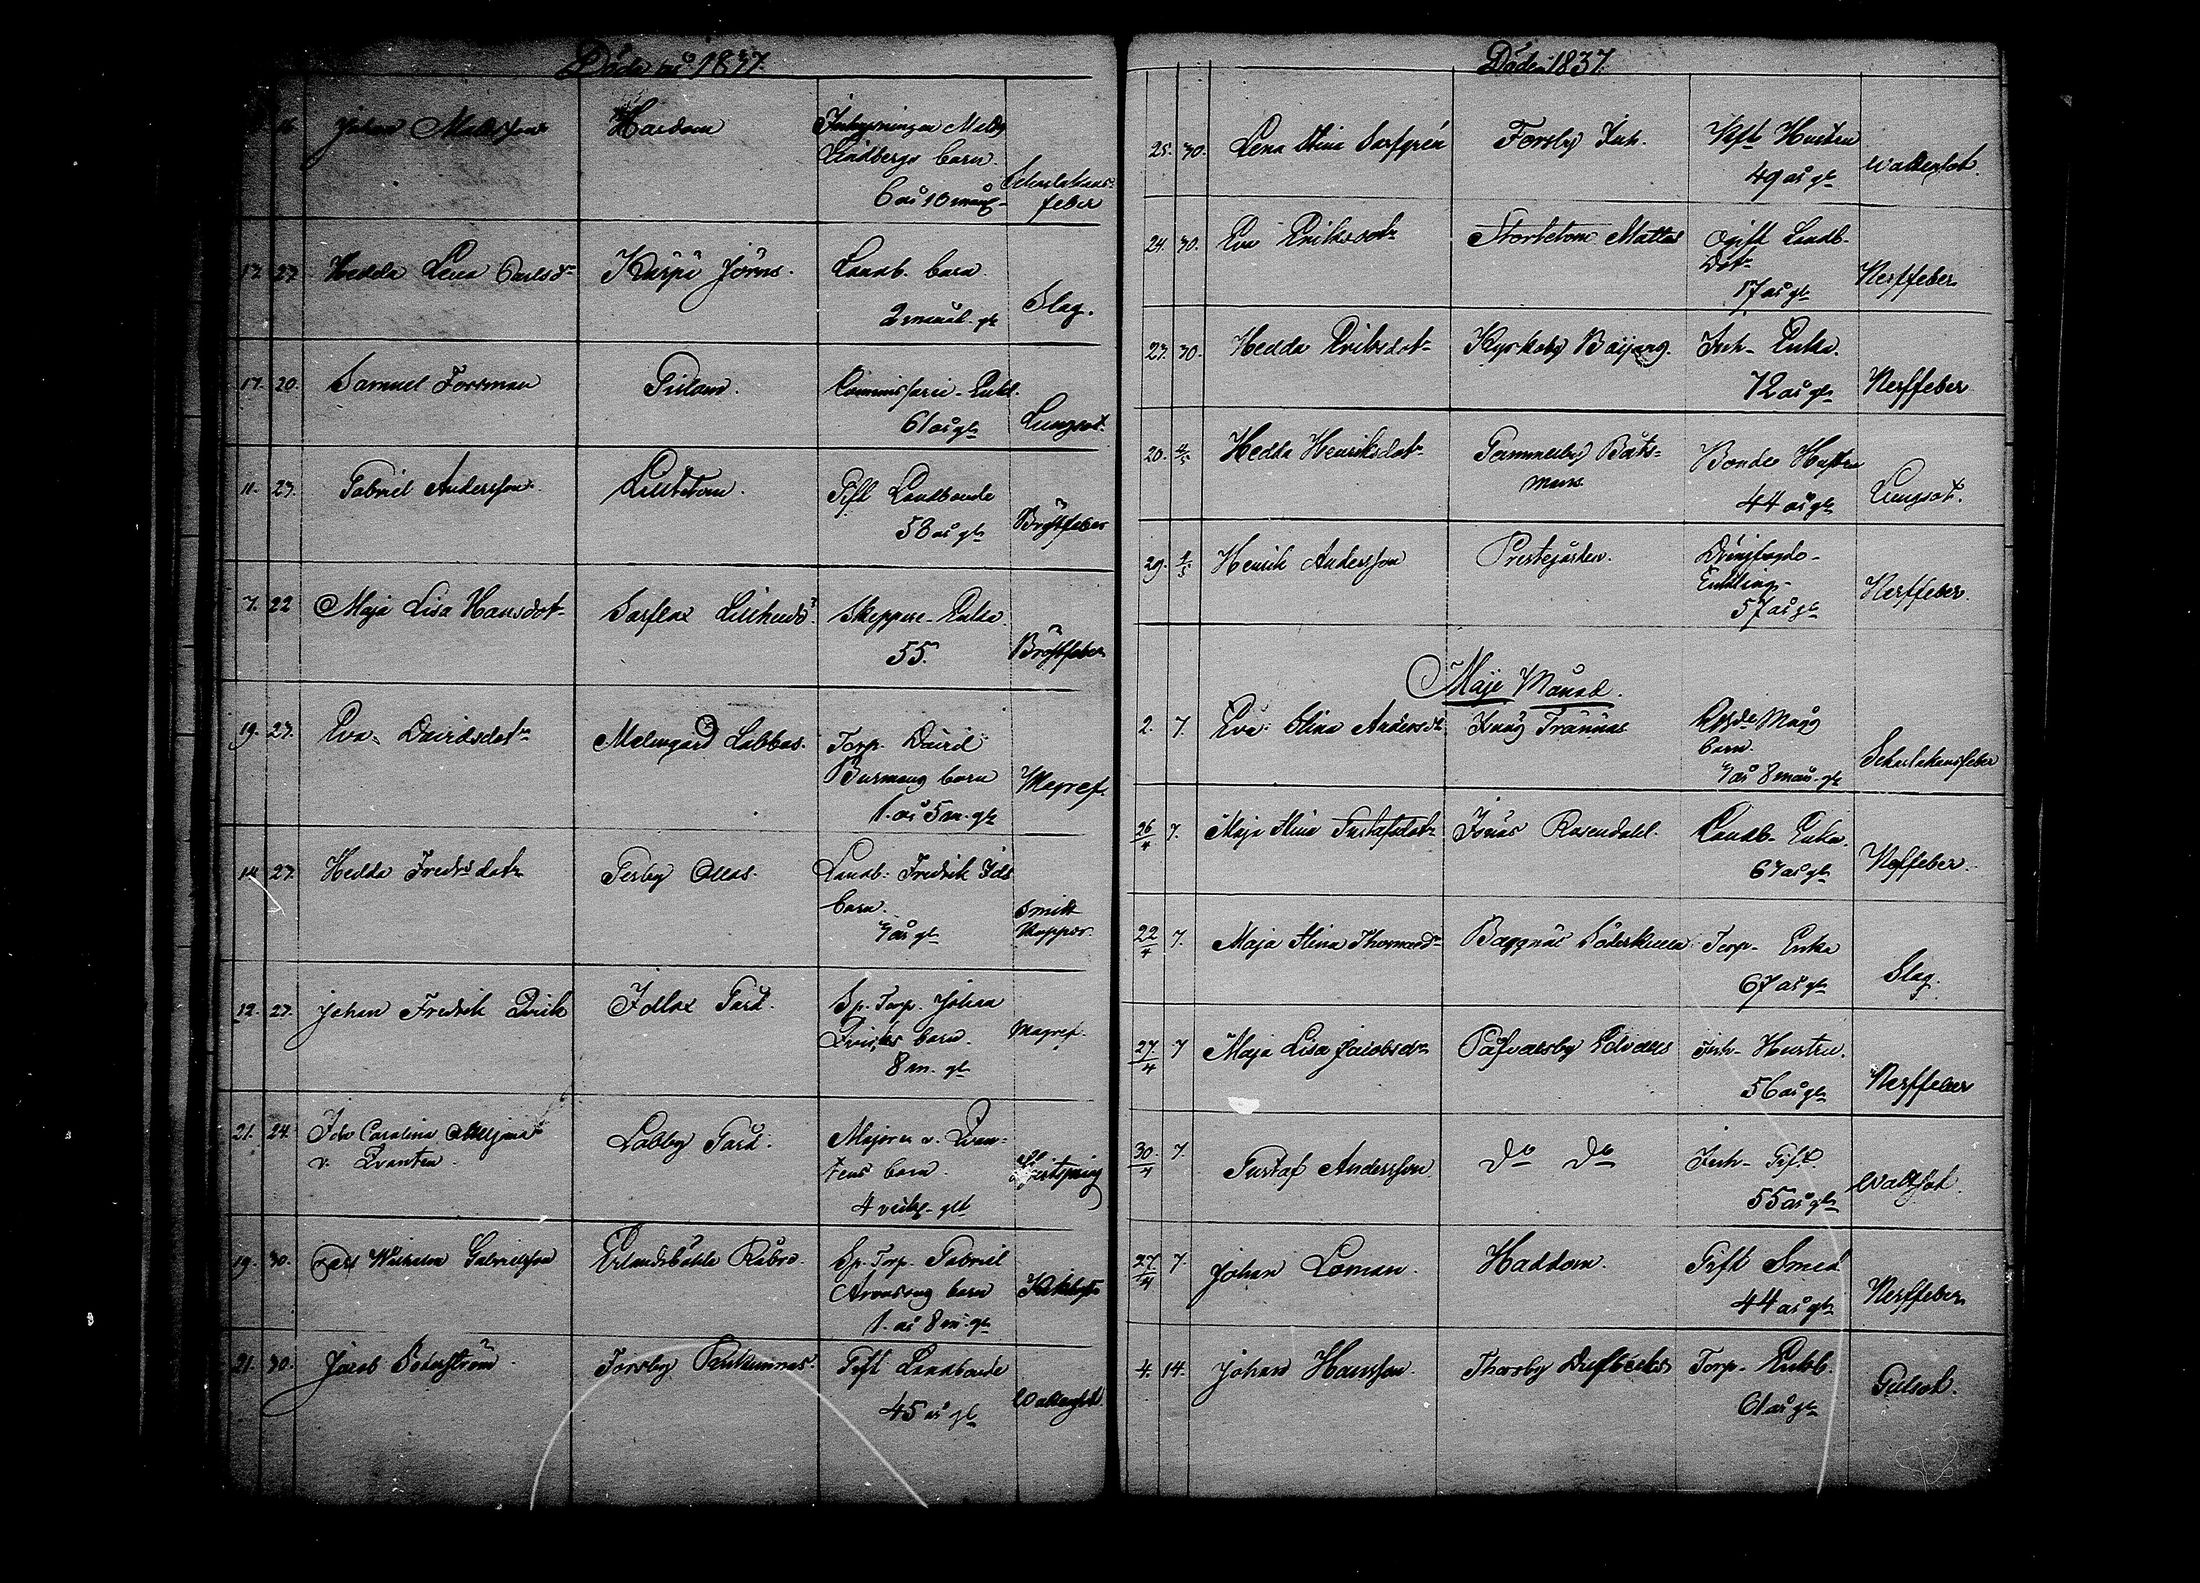 Döde år 1837.
16 Johan Mattsson Hardom Inhysningen Matts
Lindbergs barn.
6 år 10 mån Scharlakans-
feber
17. 23. Hedda Lena Carlsdr Kärpi Jöns. Landb. barn.
2 månd. gl Slag.
17. 20. Samuel Forsman Gislom. Commissarie-Enkl.
61 år gl Lungsot
11. 23. Gabriel Andersson Lilltom. Gift Landbonde
58 år gl Bröstfeber
7. 22 Maja Lisa Hansdotr Sarflax Lillhuds Skeppare-Enka.
55. Bröstfeber
19. 23. Eva Davidsdotr Malmgård Labbas. Torp. David
Burmans barn
1. år 5 m. gl Magref.
14 23. Hedda Fredrsdotr Gerby Ollas. Landb. Fredrik Ids
barn.
7 år gl Smitt
Koppor.
12. 23. Johan Fredrik Qvick Idlax Gård. Sp. Torp. Johan
Qvicks barn.
8 m. gl Magref.
21. 24. Ida Carolina
v. Qvanten. Labby Gård. Majoren v. Qvan-
tens barn.
4 veck. glt
19. 30. Carl Wilhelm Gabrielsson Erlandsböhle Råbro. Sp. Torp. Gabriel
barn Kikhosta
1. år 8 m. gl
21. 30. Jacob Söderström. Forsby Gift Landbonde
45 år gl Wattusot
Döde 1837.
25. 30. Lena Stina Sarfgrén Forsby Inh. Gift Hustru
49 år gl Wattusot.
24. 30. Eva Eriksdotr Storhetom Mattas Ogift Landb.
Dotr
17 år gl Nerffeber
23. 30. Hedda Eriksdotr Kyrkoby Inh- Enka.
72 år gl Nerffeber
20. 4/5 Hedda Henriksdotr Gammelby Båts-
mans Bonde Hustru
44 år gl Lungsot.
29. 4/5 Henrik Andersson Prestegården.
Enkling-
57 år gl Nerffeber.
Maje Månad.
2. 7. Eva Stina Andersdr Isnäs Trännas
barn.
7 år 8 mån. gl Scharlakansfeber
26/4 7. Maja Stina Gustafsdotr Isnäs Rosendahl. Landb- Enka.
67 år gl Nerffeber.
22/4 7. Maja Stina Thomasdr Baggnäs Söderkulla Torp- Enka
67 år gl Slag.
27/4 7 Maja Lisa Jacobsdr Påfvalsby Inh- Hustru.
56 år gl Nerffeber
30/4 7. Gustaf Andersson. Do Do Inh- Gift.
55 år gl Wattsot.
27/4 7. Johan Loman. Haddom. Gift Smed
44 år gl Nerffeber
4. 14. Johan Hansson. Thorsby Torp- Enkl.
61 år gl Gulsot.